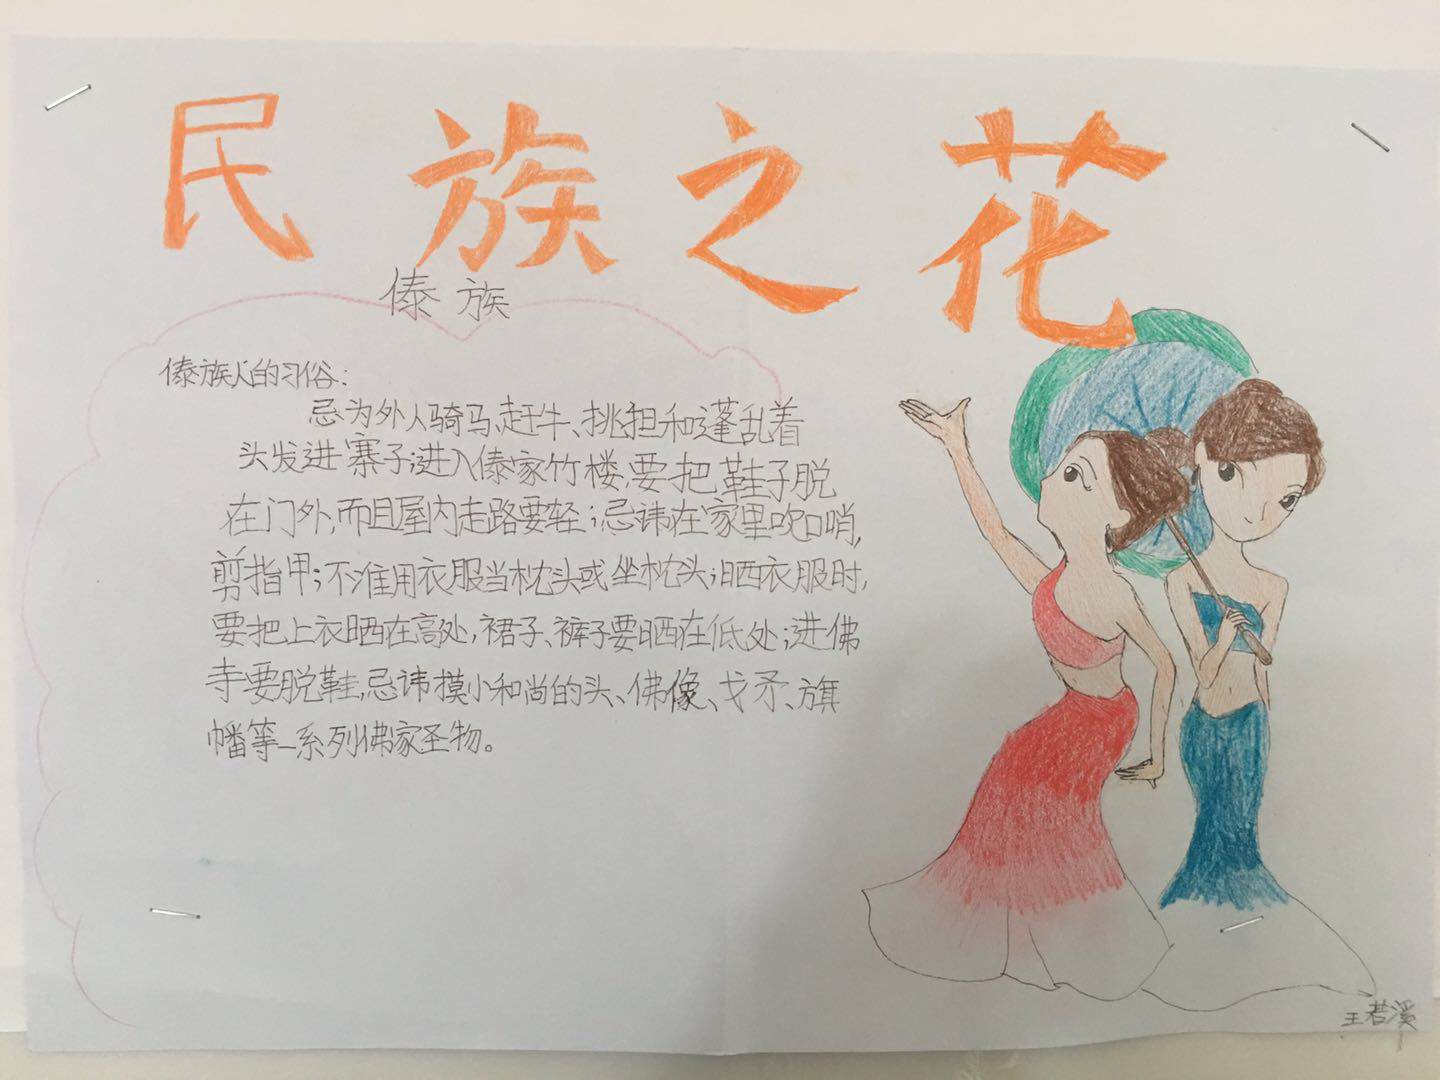 民族之花
傣族
傣族人的习俗:
忌为外人骑马、赶牛、挑担和蓬乱着
头发进寨子;进入傣家竹楼,要把鞋子脱
在门外,而且屋内走路要轻;忌讳在家里吹口哨,
剪指甲;不准用衣服当枕头或坐枕头;晒衣服时,
要把上衣晒在高处,裙子、裤子要晒在低处;进佛
寺要脱鞋,忌讳摸小和尚的头、佛像、戈矛、旗
幡等一系列佛家圣物。
王若溪